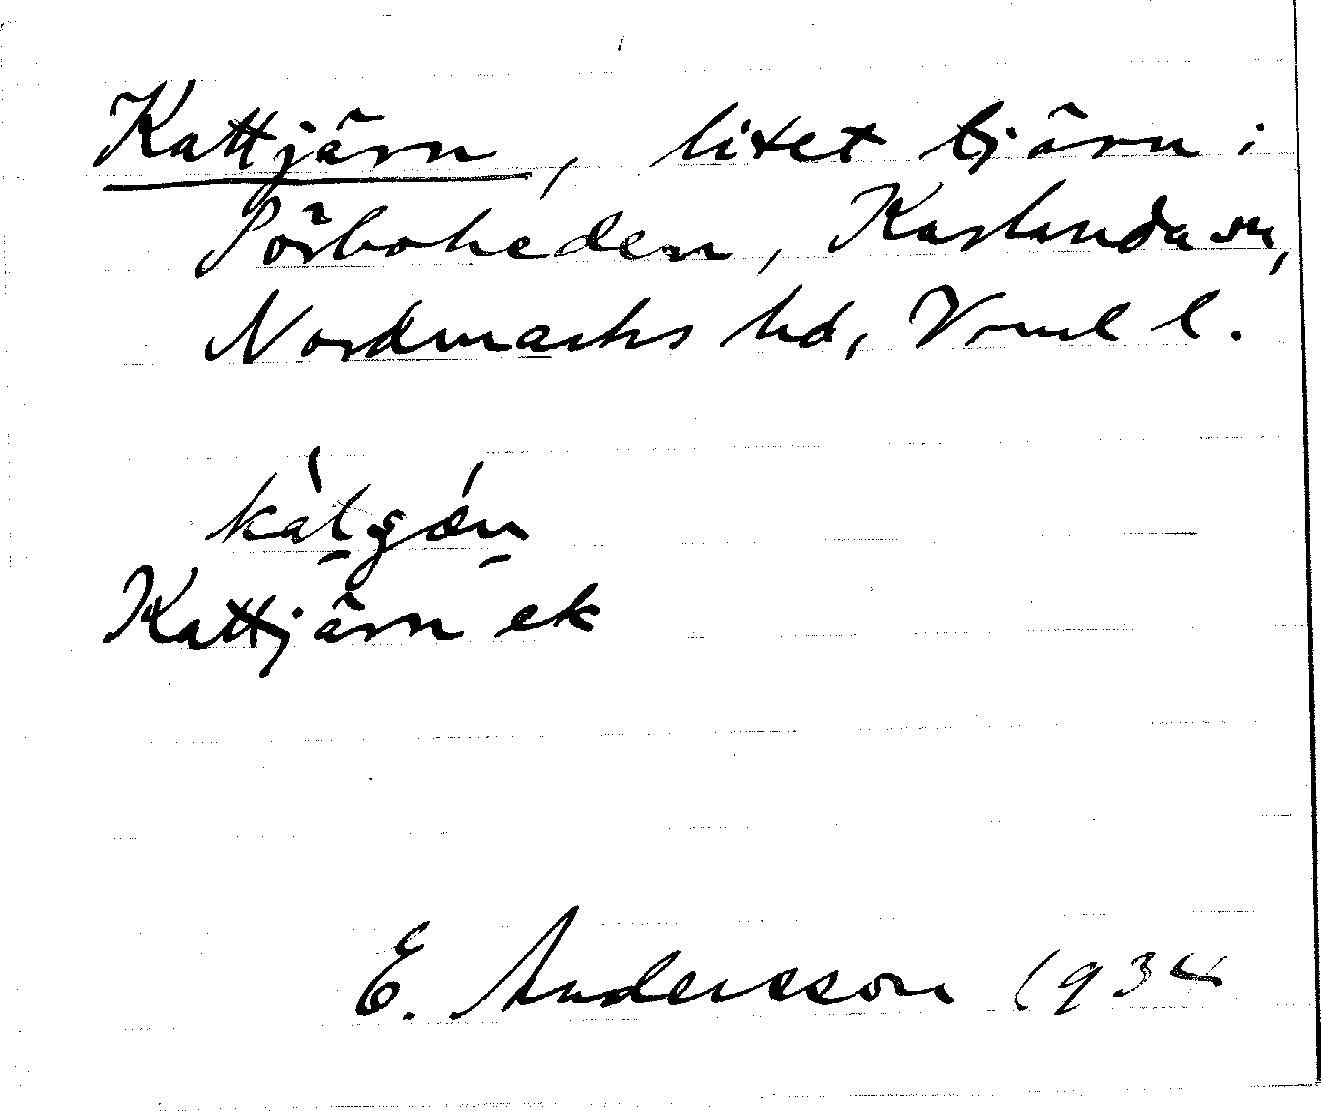 Kattjärn, litet tjärn i
Sörboheden, Karlanda sn,
Nordmarks hd, Vrml l.
Kattjärn ek
E. Andersson 1934